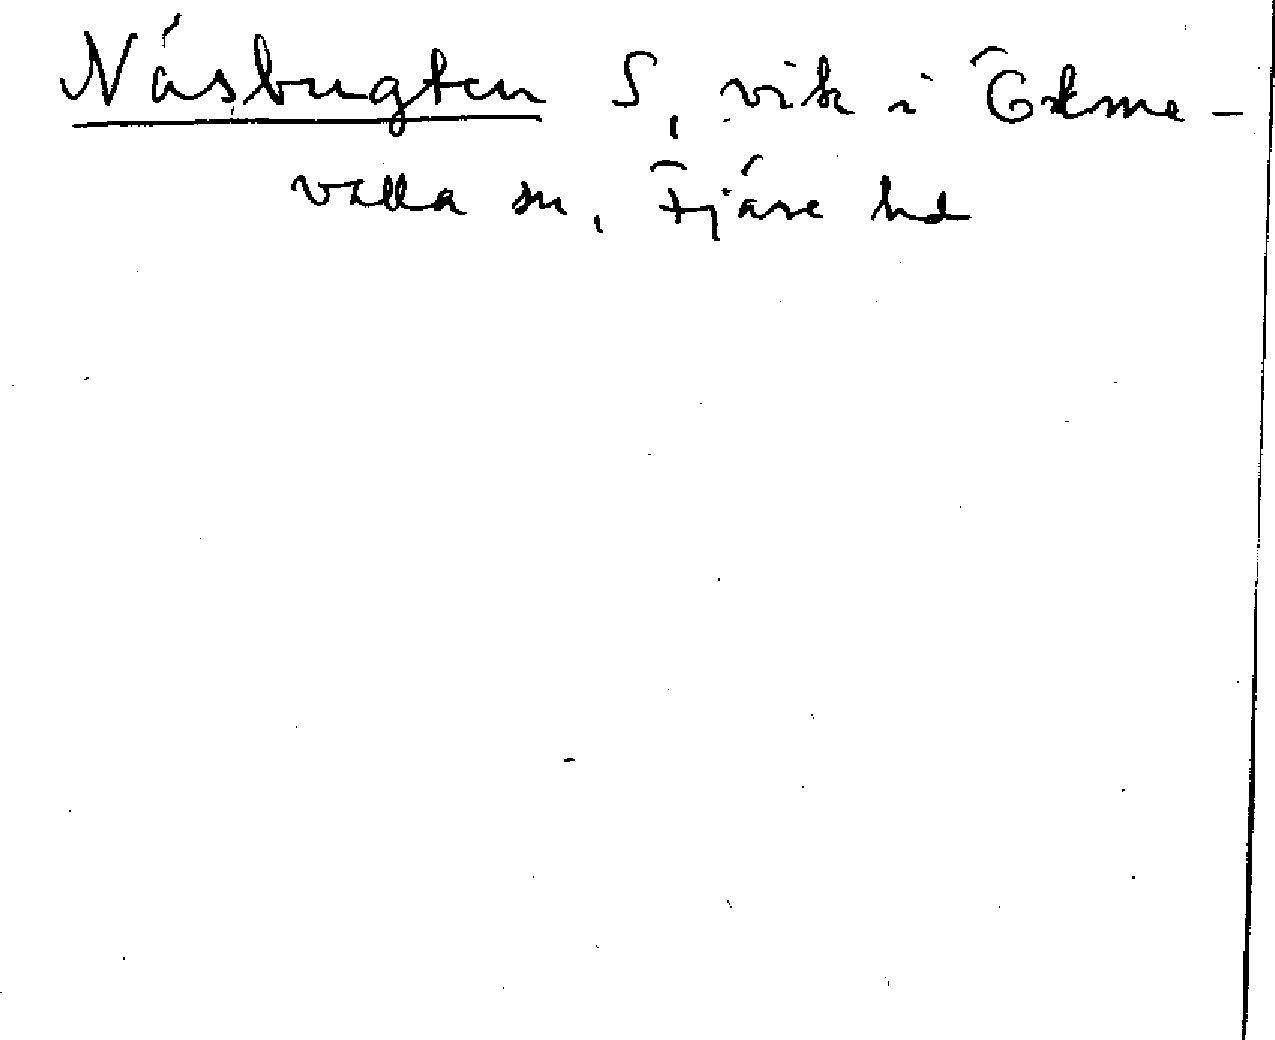 Näsbugten S, vik i Ölme-
valla sn, Fjäre hd